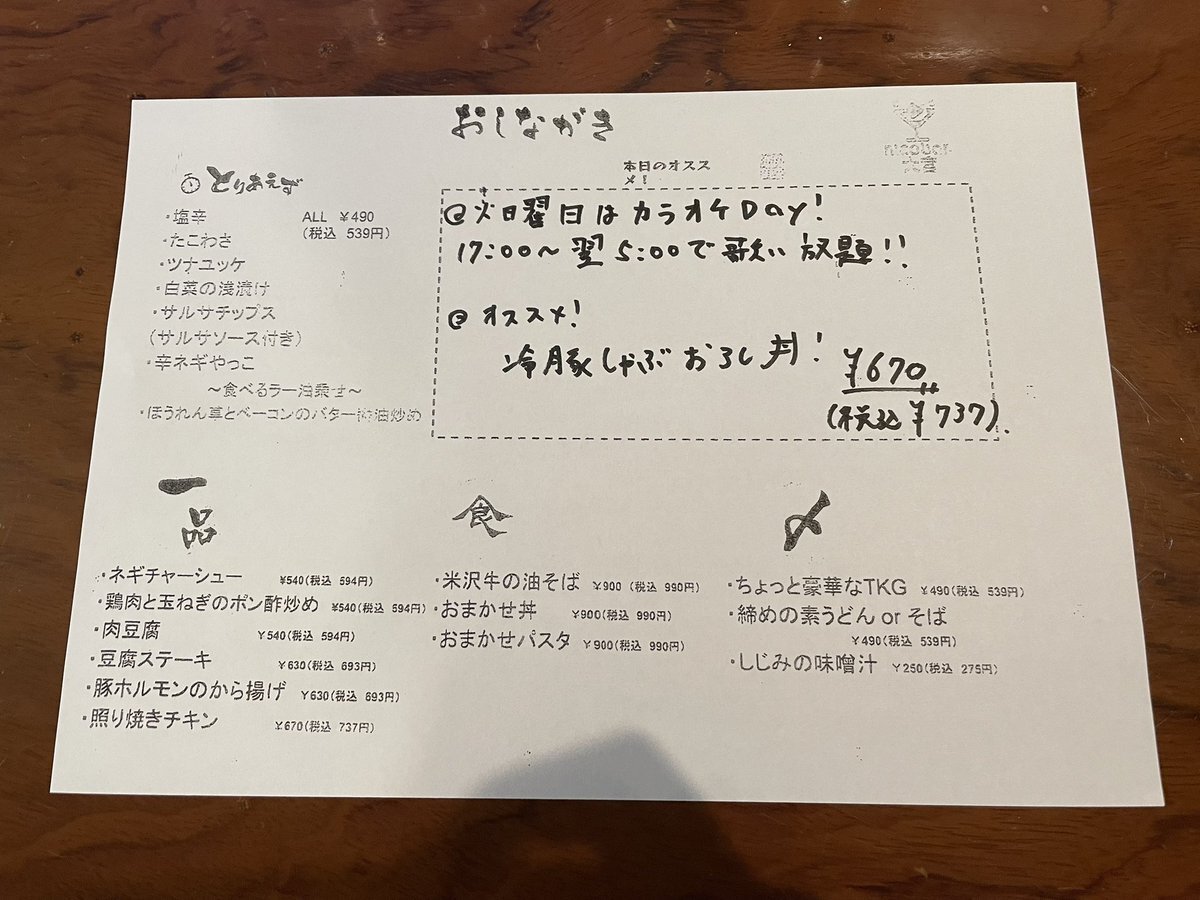 おしながき
nicobar
本日のオスス
メ!
とりあえず
・塩辛 ALL ¥490
(税込 539円)
・たこわさ
・ツナユッケ
・白菜の浅漬け
・サルサチップス
(サルサソース付き)
・辛ネギやっこ
～食べるラー油乗せ～
・ほうれん草とベーコンのバター醤油炒め
@火日曜日はカラオケDay!
17:00～翌5:00で歌い放題!!
@オススメ!
冷豚しゃぶおろし丼!
¥670
(税込¥737).
一品
・ネギチャーシュー ¥540(税込 594円)
・鶏肉と玉ねぎのポン酢炒め ¥540(税込 594円)
・肉豆腐 ¥540(税込 594円)
・豆腐ステーキ ¥630(税込 693円)
・豚ホルモンのから揚げ ¥630(税込 693円)
・照り焼きチキン ¥670(税込 737円)
食
・米沢牛の油そば ¥900 (税込 990円)
・おまかせ丼 ¥900(税込 990円)
・おまかせパスタ ¥900(税込 990円)
〆
・ちょっと豪華なTKG ¥490(税込 539円)
・締めの素うどん or そば
¥490(税込 539円)
・しじみの味噌汁 ¥250(税込 275円)